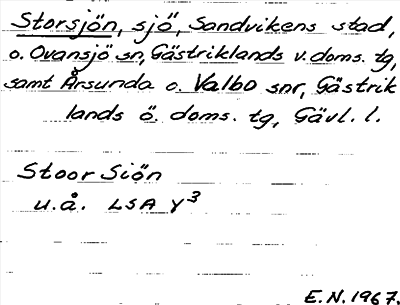 Storsjön, sjö, Sandvikens stad,
o. Ovansjö sn, Gästriklands v. doms. tg,
samt Årsunda o. Valbo snr, Gästrik
lands ö. doms. tg, Gävl. l.
Stoor Siön
u.å. LSA Y³
E.N. 1967.